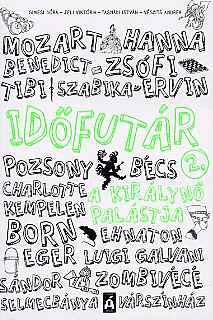 GIMESI DÓRA - JELI VIKTÓRIA - TASNÁDI ISTVÁN - VÉSZITS ANDREA
MOZART HANNA
BENEDICT ZSÓFI
TIBI SZABIKA ERVIN
IDŐFUTÁR
POZSONY BÉCS 2..
CHARLOTTE A KIRÁLYNŐ
KEMPELEN PALÁSTJA
BORN EHNATON
EGER LUIGI GALVANI
SÁNDOR ZOMBIVÉCÉ
SELMECBÁNYA VÁRSZÍNHÁZ